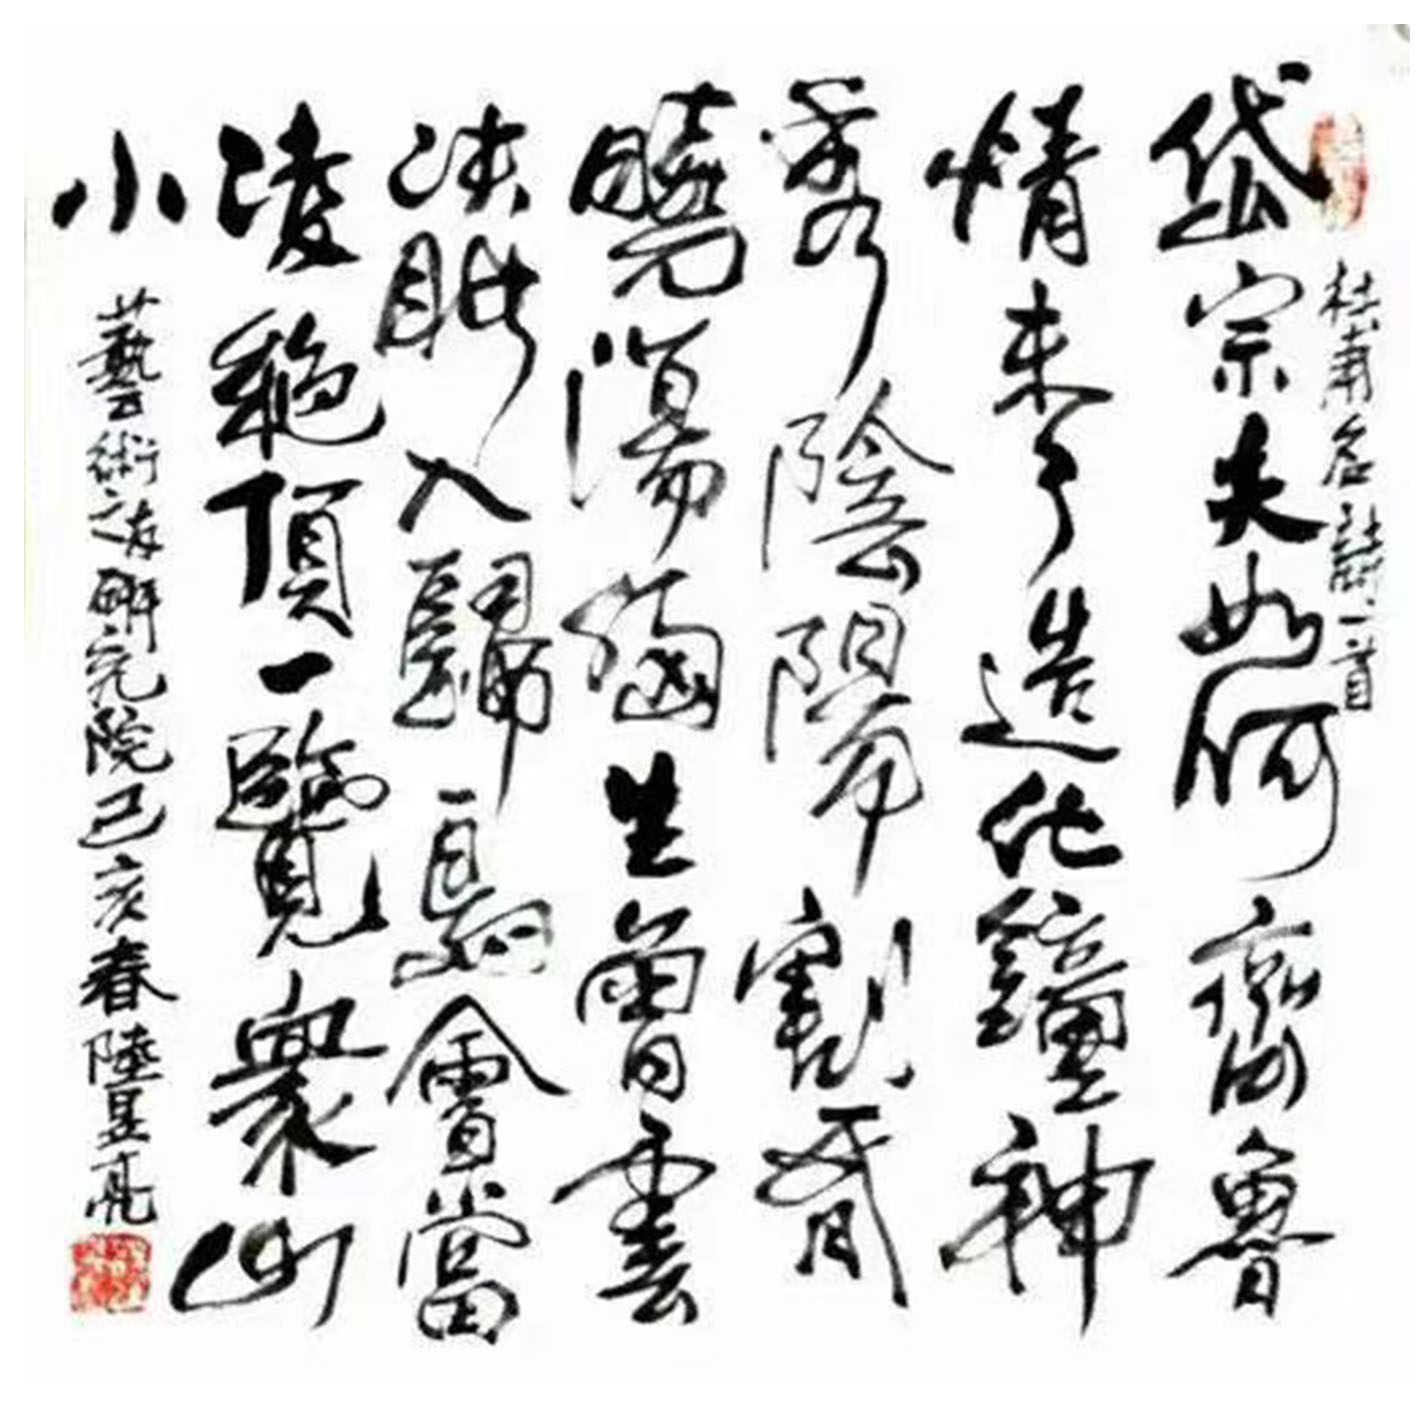 杜甫名詩一首
岱宗夫如何齊魯
情未了造化鐘神
秀陰陽割昏
曉蕩胸生曾雲
決眦入歸鳥會當
凌絕頂一覽衆山
小
藝術之友研究院己亥春陸昱亮